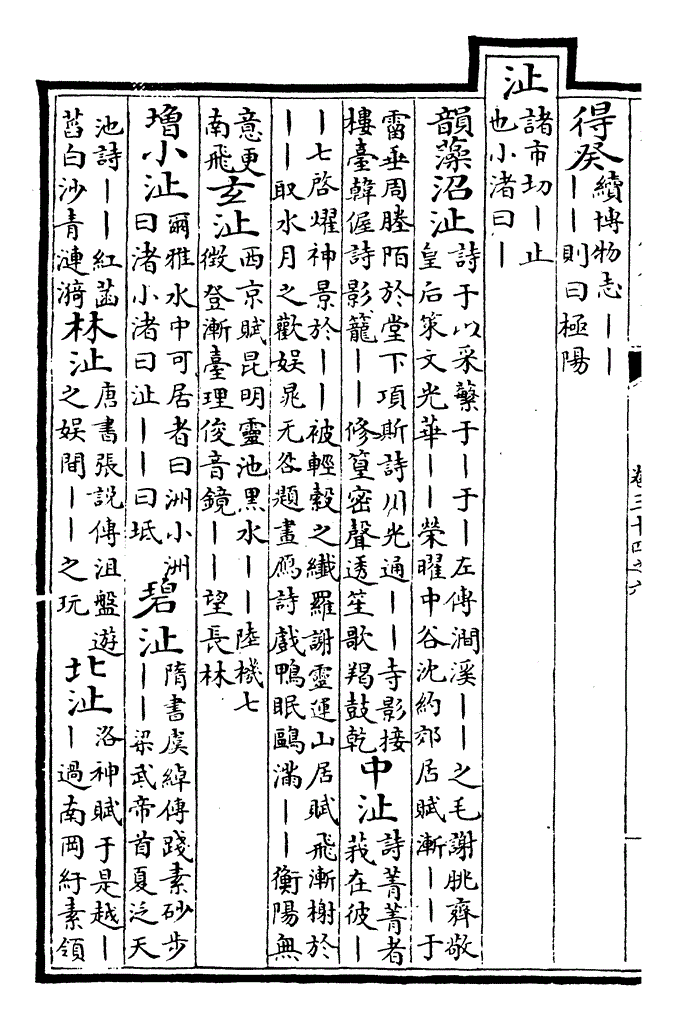 得癸續博物志丨丨
丨丨則曰極陽
沚諸市切丨止
也小渚曰丨
韻藻沼沚詩于以采蘩于丨于丨左傳澗溪丨丨之毛謝朓齊敬
皇后策文光華丨丨榮曜中谷沈約郊居賦漸丨丨于
霤垂周塍陌於堂下項斯詩川光通丨丨寺影接
樓臺韓偓詩影籠丨丨修篁密聲透笙歌羯鼓乾中沚詩菁菁者
莪在彼丨
丨七啓燿神景於丨丨被輕縠之纖羅謝靈運山居賦飛漸榭於
丨丨取水月之歡娛晁无咎題畫鴈詩戲鴨眠鷗滿丨丨衡陽無
意更
南飛玄沚西京賦昆明靈池黑水丨丨陸機七
徵登漸臺理俊音鏡丨丨望長林
增小沚爾雅水中可居者曰洲小洲
曰渚小渚曰沚丨丨曰坻碧沚隋書虞綽傳踐素砂步
丨丨梁武帝首夏泛天
池詩丨丨紅菡
萏白沙青漣漪林沚唐書張說傳沮盤遊
之娛間丨丨之玩北沚洛神賦于是越丨
丨過南岡紆素領
卷三十四之六